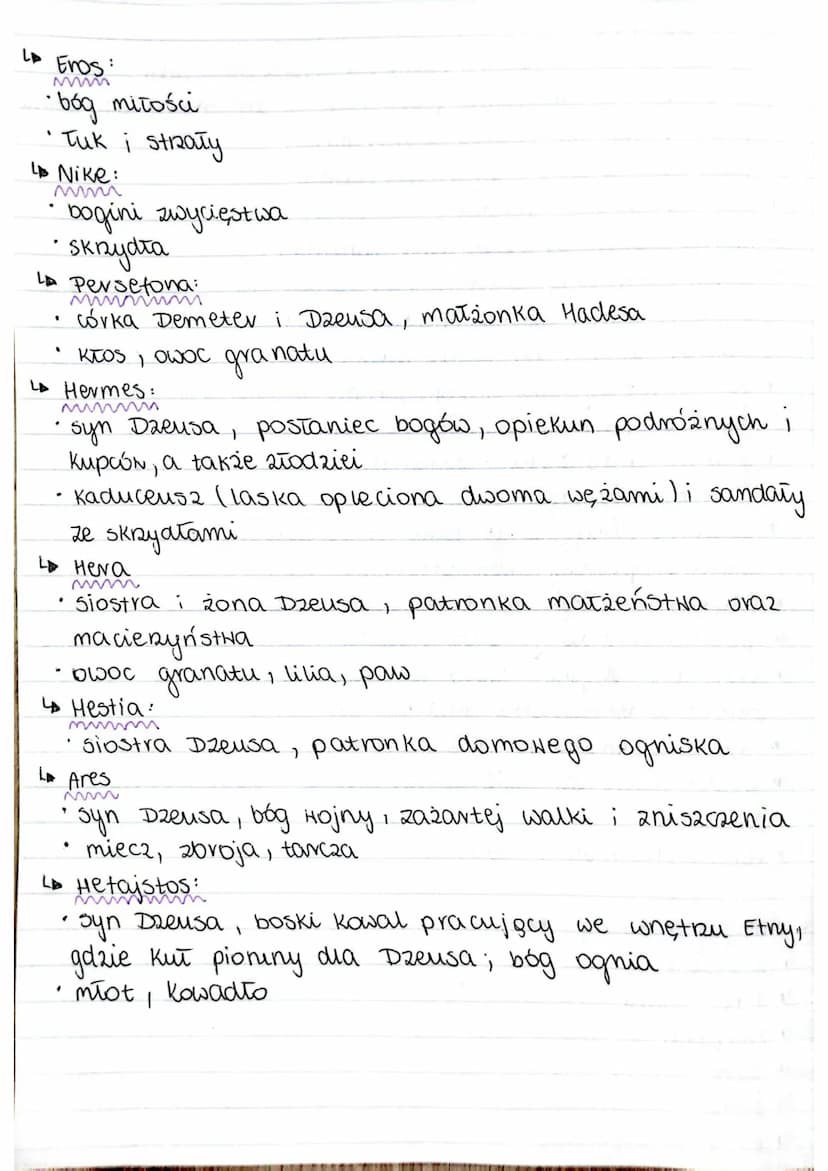 ↳ Eros:
· bóg miłości
· Łuk i strzały
↳ Nike:
· bogini zwycięstwa
· skrzydła
↳ Persefona:
· córka Demeter i Dzeusa, małżonka Hadesa
· kłos, owoc granatu
↳ Hermes:
· syn Dzeusa, posłaniec bogów, opiekun podróżnych i
kupców, a także złodziei
· kaduceusz (laska opleciona dwoma wężami) i sandały
ze skrzydłami
↳ Hera
· siostra i żona Dzeusa, patronka małżeństwa oraz
macierzyństwa
· owoc granatu, lilia, paw
↳ Hestia:
· siostra Dzeusa, patronka domowego ogniska
↳ Ares
· syn Dzeusa, bóg wojny, zażartej walki i zniszczenia
· miecz, zbroja, tarcza
↳ Hefajstos:
· syn Dzeusa, boski kowal pracujący we wnętrzu Etny,
gdzie kuł pioruny dla Dzeusa; bóg ognia
· młot, kowadło